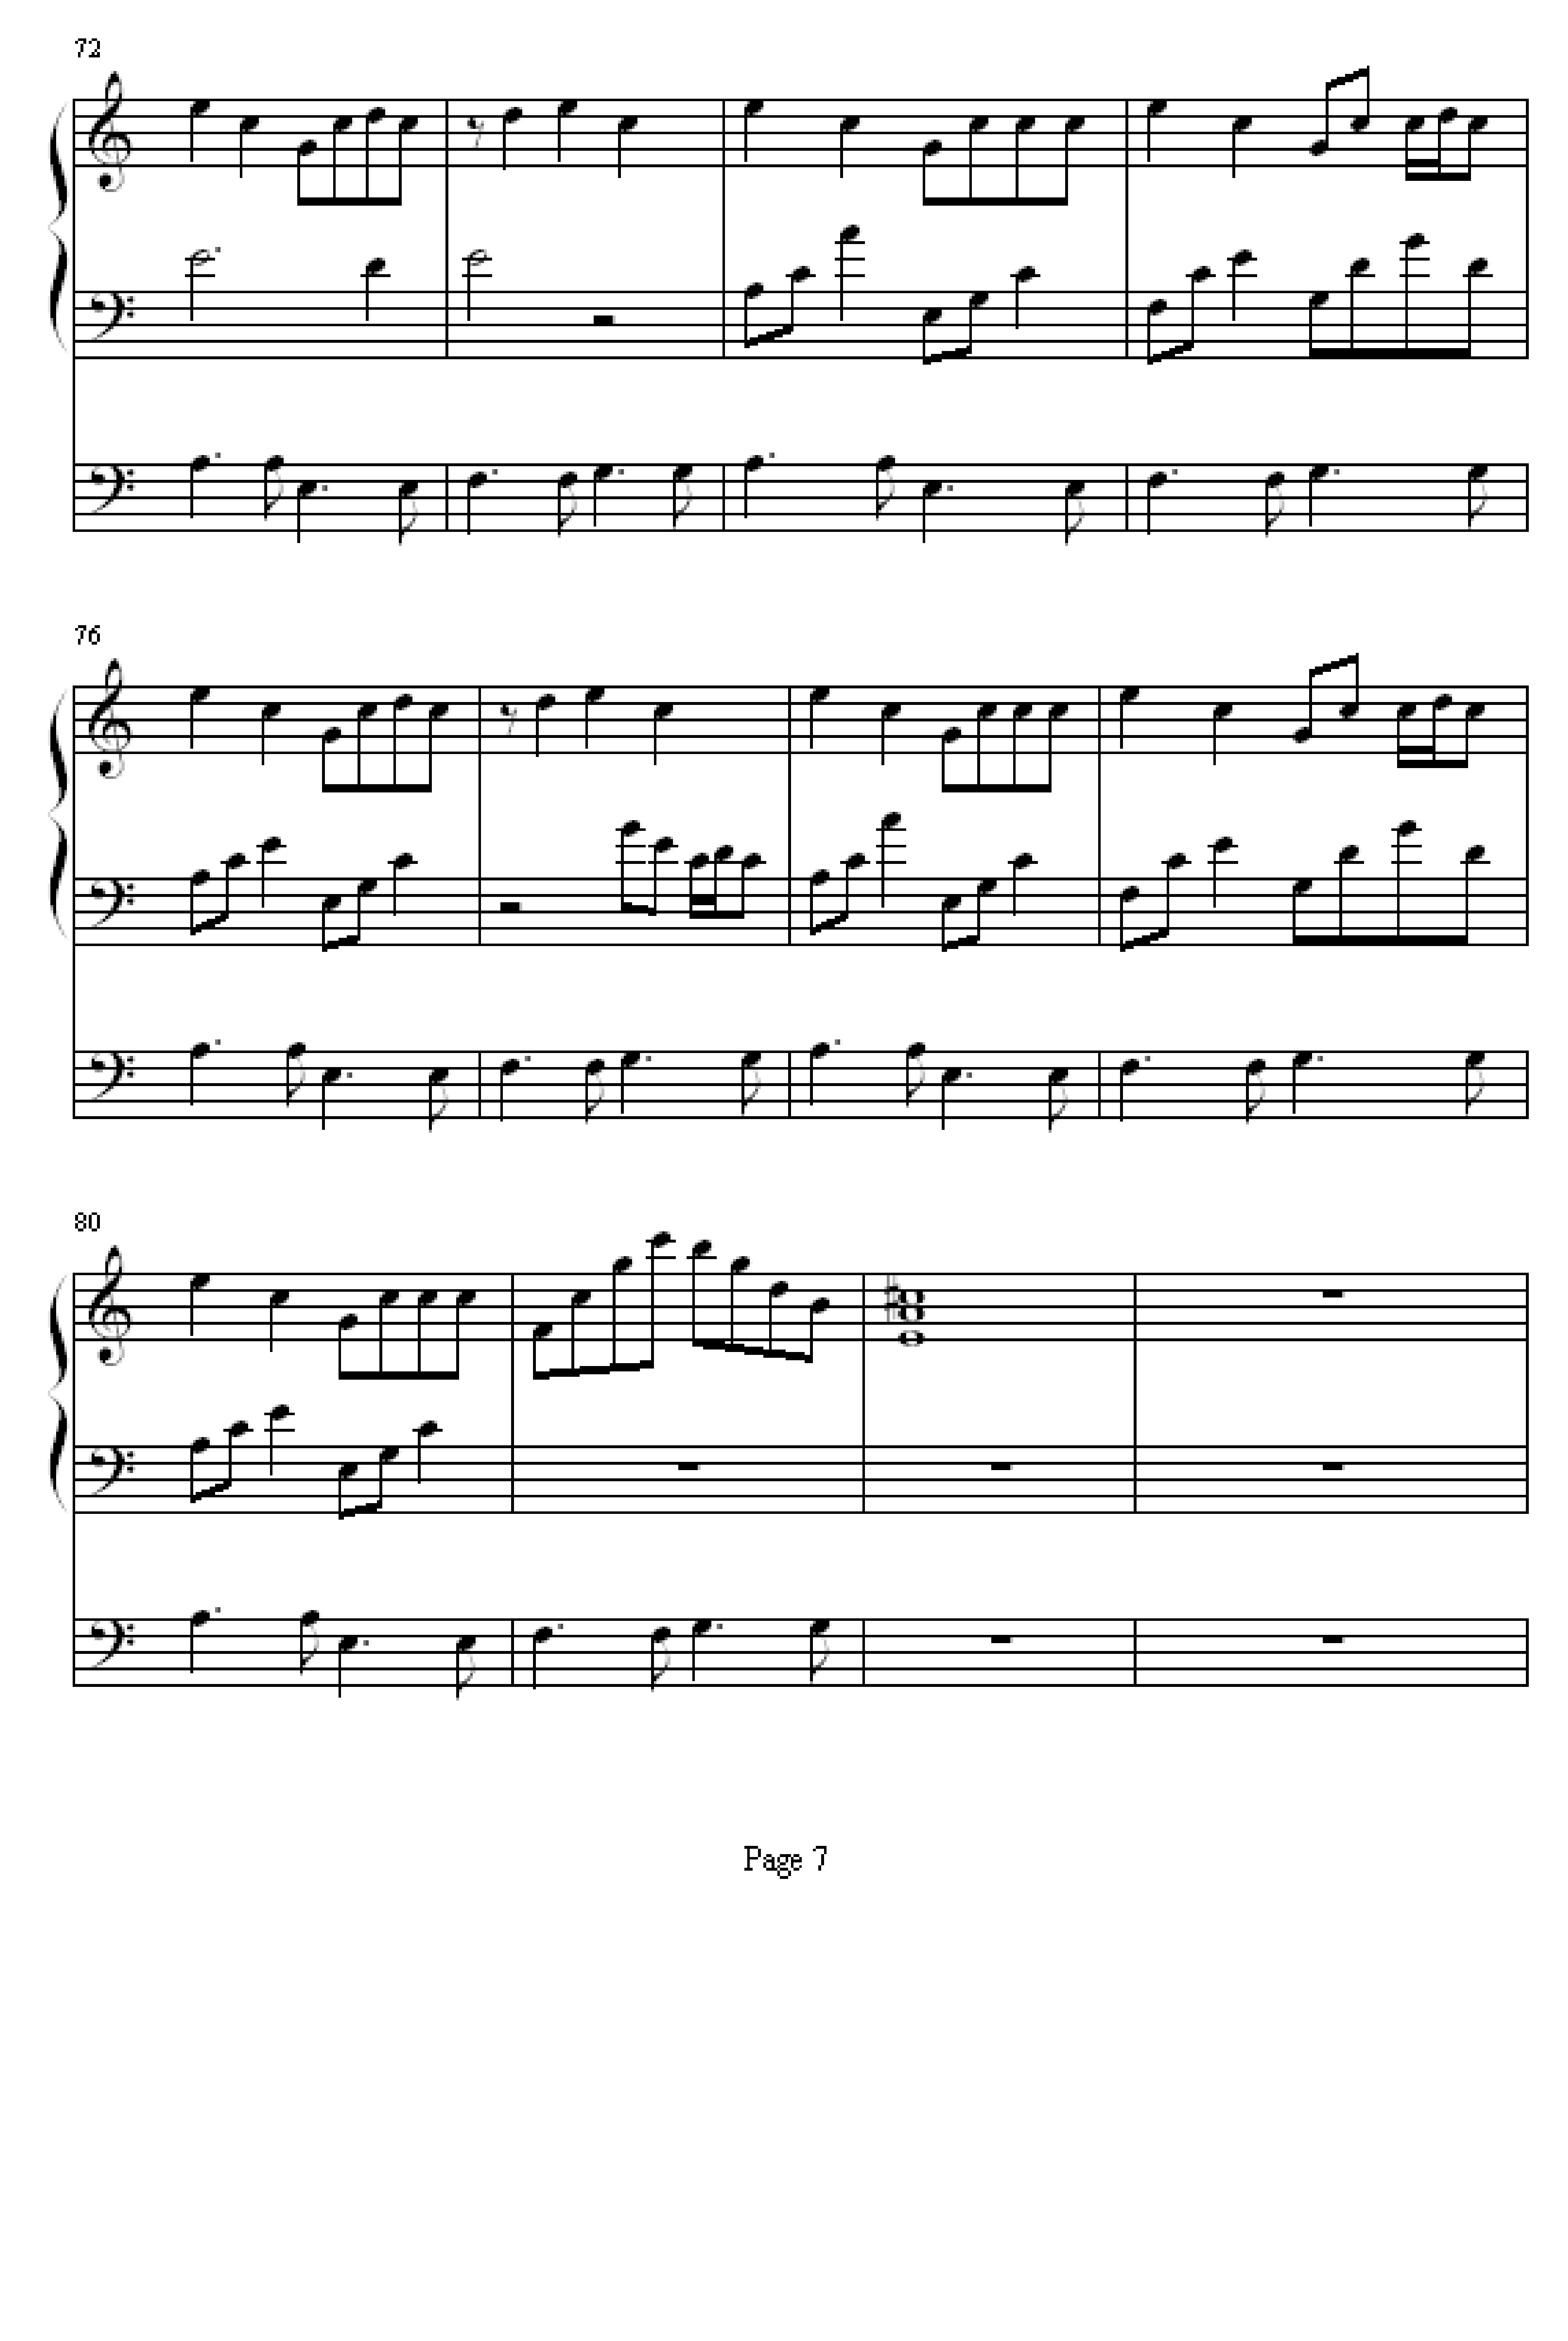 72
76
80
Page 7